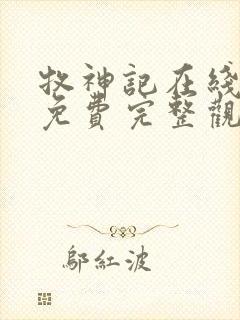 牧神記在綫
免費完整觀
鄔紅波